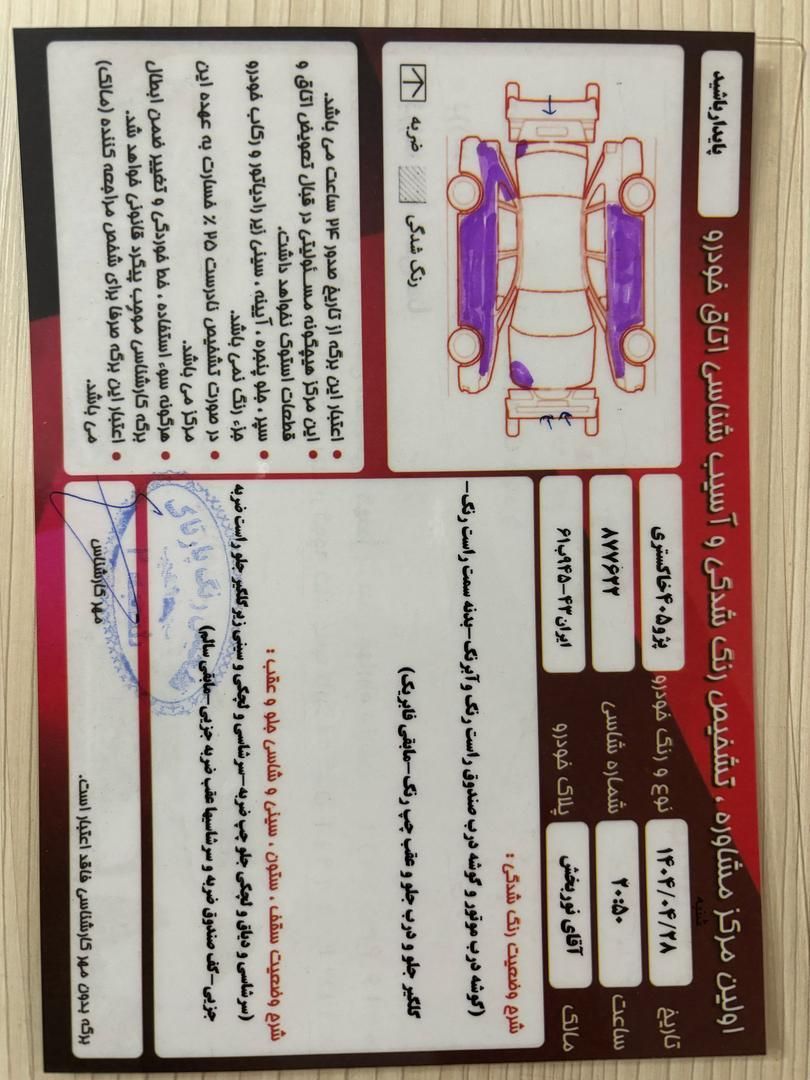 اولین مرکز مشاوره، تشخیص رنگ شدگی و آسیب شناسی اتاق خودرو
پایدار باشید
تاریخ
۱۴۰۴/۰۴/۲۸
شنبه
نوع و رنگ خودرو
پژو۴۰۵خاکستری
ساعت
۲۰:۵۰
شماره شاسی
۸۷۷۶۲۲
مالک
آقای نوربخش
پلاک خودرو
ایران۴۳-۹۴۵ب۶۱
شرح وضعیت رنگ شدگی :
(گوشه درب موتور و گوشه درب صندوق راست رنگ و آبرنگ-بدنه سمت راست رنگ-
گلگیر جلو و درب جلو و عقب چپ رنگ-مابقی فابریک)
شرح وضعیت سقف ، ستون ، سینی و شاسی جلو و عقب :
(سرشاسی و دیاق و لچکی جلو چپ ضربه-سرشاسی و لچکی و سینی زیر گلگیر جلو راست ضربه
جزیی-کف صندوق ضربه و سرشاسیها عقب ضربه جزیی-مابقی سالم)
مهر کارشناس
برگه بدون مهر کارشناسی فاقد اعتبار است.
ضربه
رنگ شدگی
• اعتبار این برگه از تاریخ صدور ۲۴ ساعت می باشد.
• این مرکز هیچگونه مسئولیتی در قبال تعویض اتاق و
قطعات استوک نخواهد داشت.
• سپر ، جلو پنجره ، آیینه ، سینی زیر رادیاتور و رکاب خودرو
جزء رنگ نمی باشد.
• در صورت تشخیص نادرست ۲۵ ٪ خسارت به عهده این
مرکز می باشد.
• هرگونه سوء استفاده ، خط خوردگی و تغییر ضمن ابطال
برگه کارشناسی موجب پیگرد قانونی خواهد شد.
• اعتبار این برگه صرفا برای شخص مراجعه کننده (مالک)
می باشد.